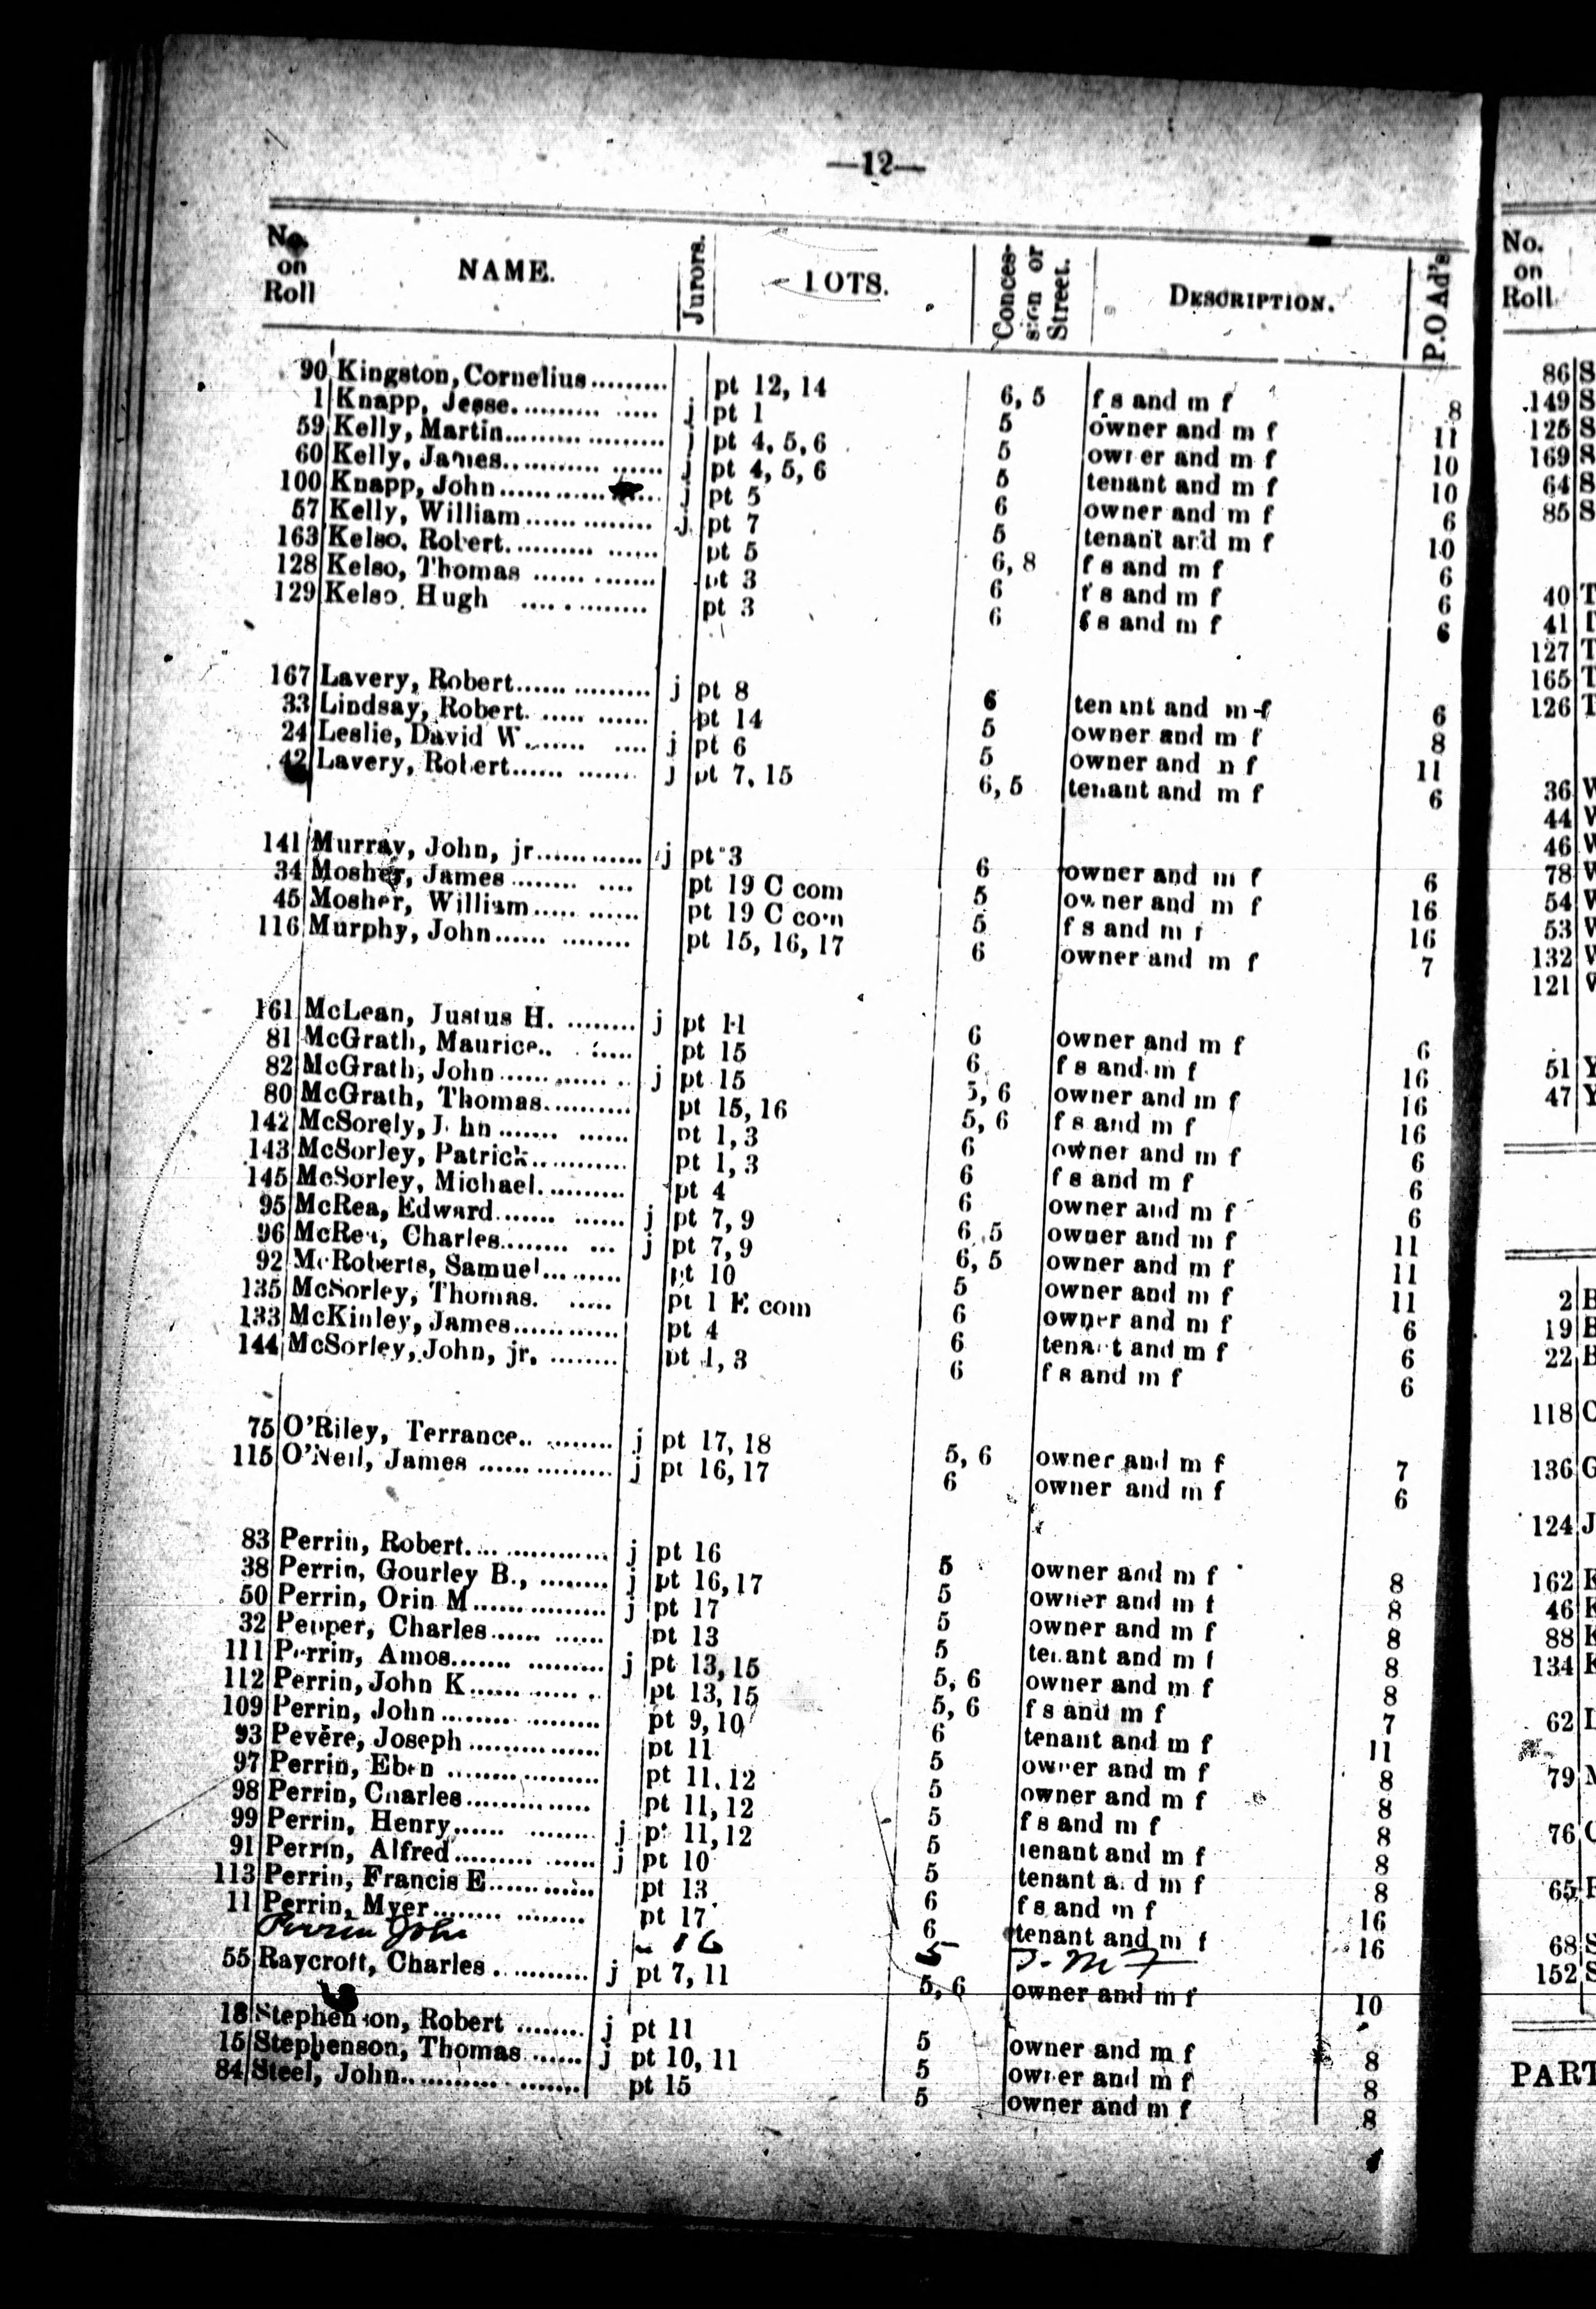 —12—
No. on Roll NAME. Jurors. LOTS. Concession or Street. DESCRIPTION. P.O Ad's
90 Kingston, Cornelius pt 12, 14 6, 5 f s and m f 8
1 Knapp, Jesse j pt 1 5 owner and m f 11
59 Kelly, Martin j pt 4, 5, 6 5 owner and m f 10
60 Kelly, James j pt 4, 5, 6 5 tenant and m f 10
100 Knapp, John j pt 5 6 owner and m f 6
57 Kelly, William j pt 7 5 tenant and m f 10
163 Kelso, Robert pt 5 6, 8 f s and m f 6
128 Kelso, Thomas pt 3 6 f s and m f 6
129 Kelso, Hugh pt 3 6 f s and m f 6
167 Lavery, Robert j pt 8 6 tenant and m f 6
33 Lindsay, Robert pt 14 5 owner and m f 8
24 Leslie, David W. j pt 6 5 owner and m f 11
42 Lavery, Robert j pt 7, 15 6, 5 tenant and m f 6
141 Murray, John, jr j pt 3 6 owner and m f 6
34 Mosher, James pt 19 C com 5 owner and m f 16
45 Mosher, William pt 19 C com 5 f s and m f 16
116 Murphy, John pt 15, 16, 17 6 owner and m f 7
161 McLean, Justus H. j pt 11 6 owner and m f 6
81 McGrath, Maurice pt 15 6 f s and m f 16
82 McGrath, John j pt 15 5, 6 owner and m f 16
80 McGrath, Thomas pt 15, 16 5, 6 f s and m f 16
142 McSorely, John pt 1, 3 6 owner and m f 6
143 McSorley, Patrick pt 1, 3 6 f s and m f 6
145 McSorley, Michael pt 4 6 owner and m f 6
95 McRea, Edward j pt 7, 9 6, 5 owner and m f 11
96 McRea, Charles j pt 7, 9 6, 5 owner and m f 11
92 McRoberts, Samuel pt 10 5 owner and m f 11
135 McSorley, Thomas pt 1 E com 6 owner and m f 6
133 McKinley, James pt 4 6 tenant and m f 6
144 McSorley, John, jr. pt 1, 3 6 f s and m f 6
75 O'Riley, Terrance j pt 17, 18 5, 6 owner and m f 7
115 O'Neil, James j pt 16, 17 6 owner and m f 6
83 Perrin, Robert j pt 16 5 owner and m f 8
38 Perrin, Gourley B., j pt 16, 17 5 owner and m f 8
50 Perrin, Orin M j pt 17 5 owner and m f 8
32 Pepper, Charles pt 13 5 tenant and m f 8
111 Perrin, Amos j pt 13, 15 5, 6 owner and m f 8
112 Perrin, John K pt 13, 15 5, 6 f s and m f 7
109 Perrin, John pt 9, 10 6 tenant and m f 11
93 Pevere, Joseph pt 11 5 owner and m f 8
97 Perrin, Eben pt 11, 12 5 owner and m f 8
98 Perrin, Charles pt 11, 12 5 f s and m f 8
99 Perrin, Henry j pt 11, 12 5 tenant and m f 8
91 Perrin, Alfred j pt 10 5 tenant and m f 8
113 Perrin, Francis E pt 13 6 f s and m f 16
11 Perrin, Myer pt 17 6 tenant and m f 16
Perrin John 16 5 M F
55 Raycroft, Charles j pt 7, 11 5, 6 owner and m f 10
18 Stephenson, Robert j pt 11 5 owner and m f 8
15 Stephenson, Thomas j pt 10, 11 5 owner and m f 8
84 Steel, John pt 15 5 owner and m f 8
No. on Roll
86 S
149 S
125 S
169 S
64 S
85 S
40 T
41 T
127 T
165 T
126 T
36 W
44 W
46 W
78 W
54 W
53 W
132 W
121 W
51 Y
47 Y
2 B
19 B
22 B
118 C
136 G
124 J
162 K
46 K
88 K
134 K
62 L
79 M
76 O
65 P
68 S
152 S
PART